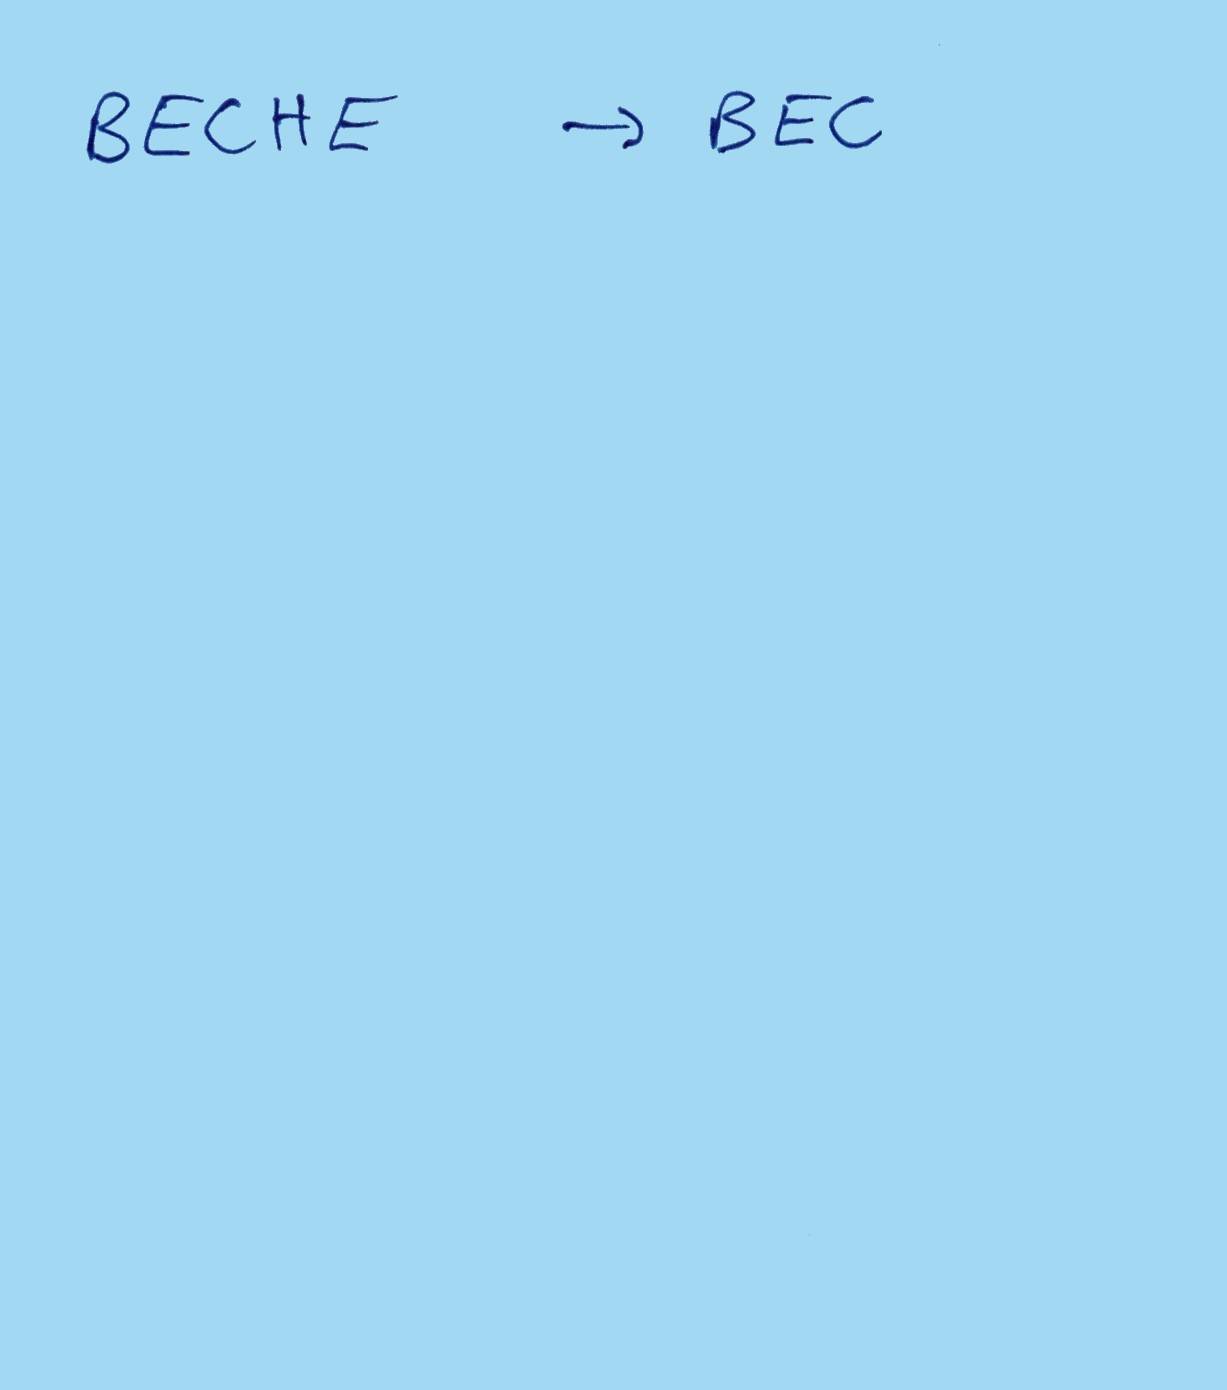 BECHE → BEC